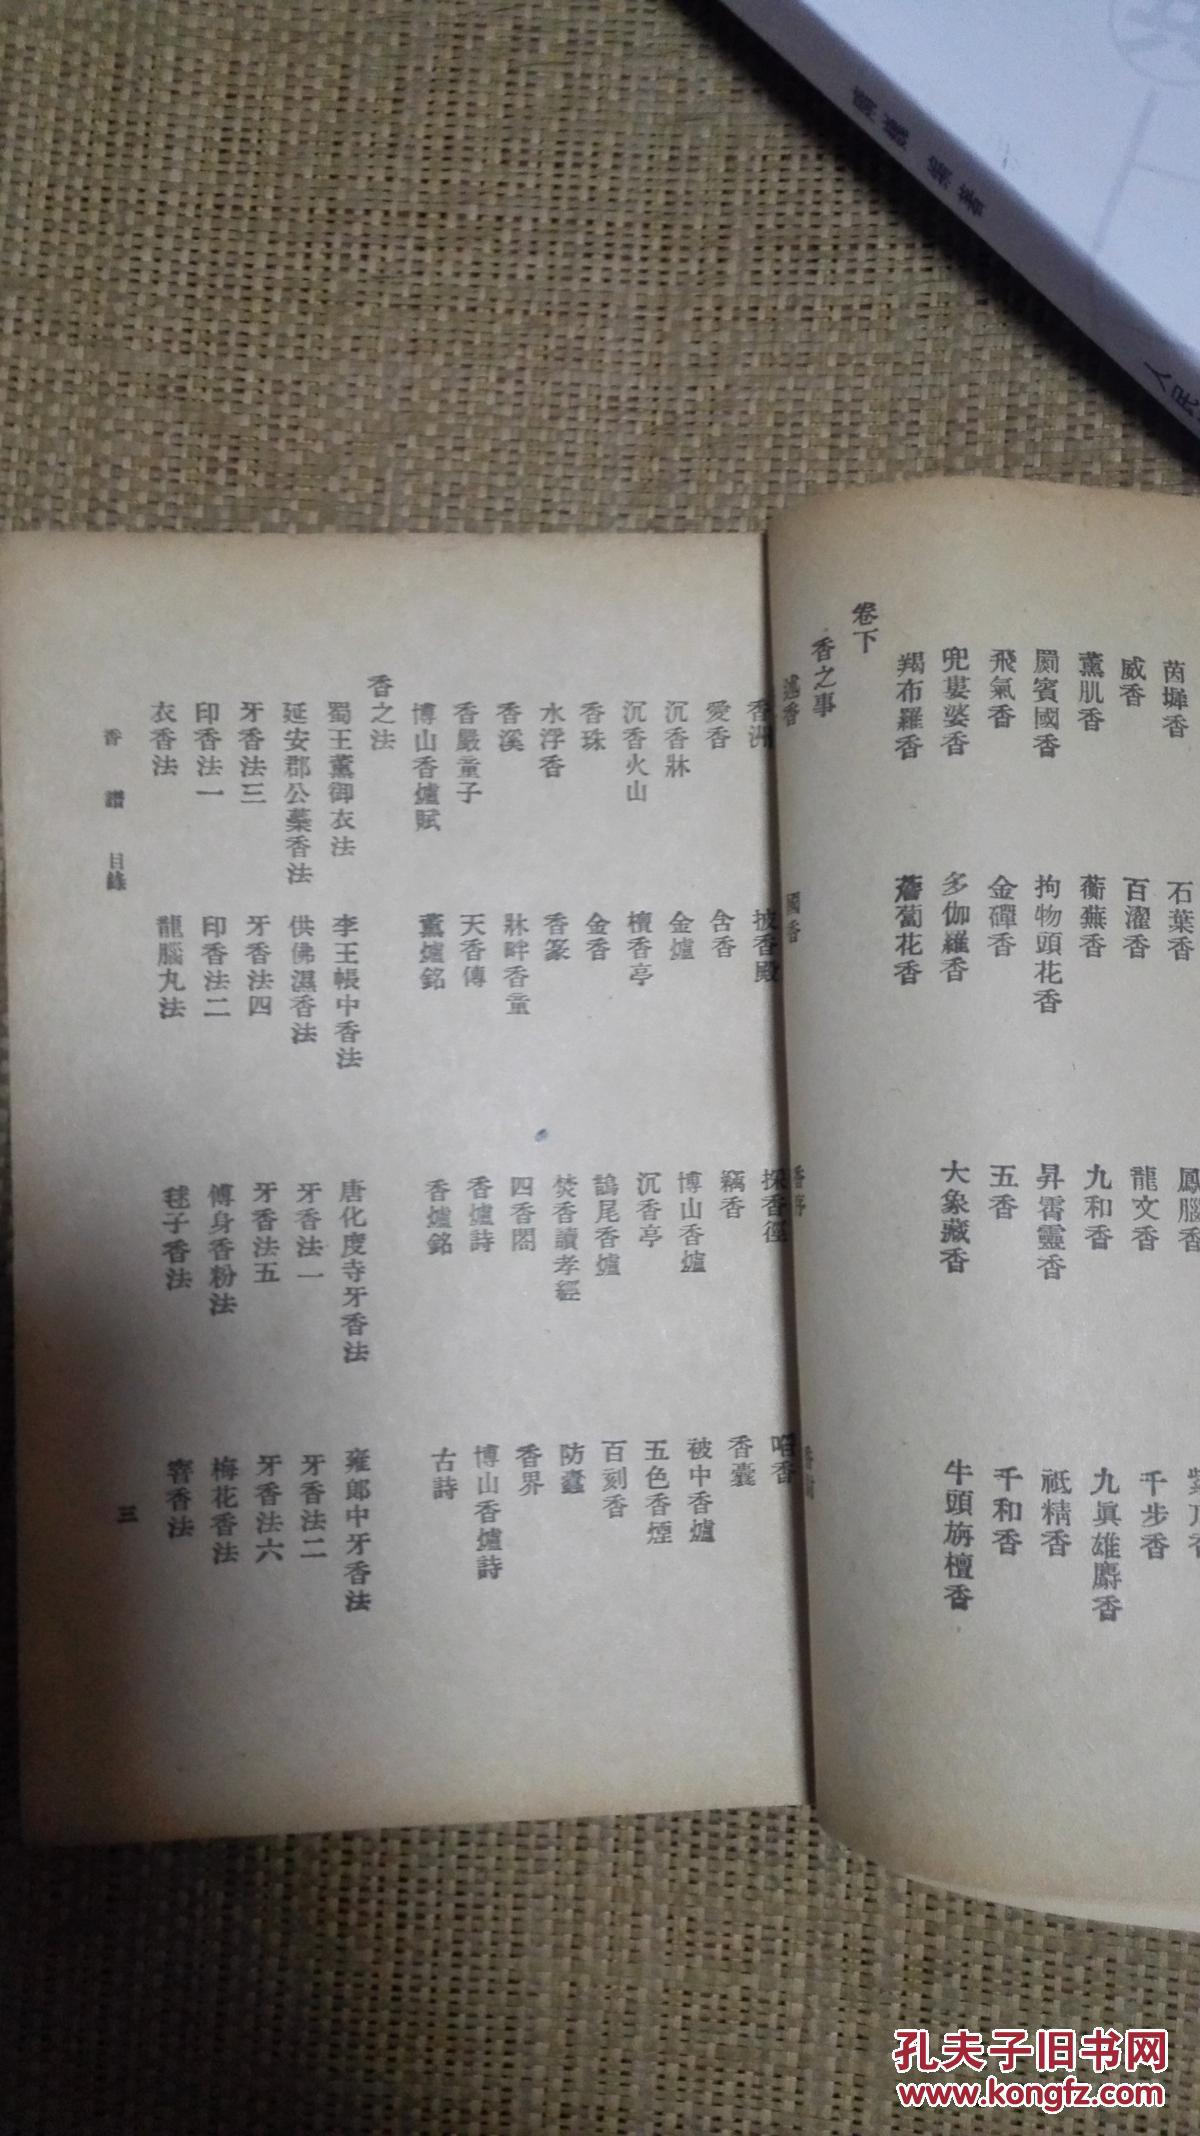 茵墀香 石葉香 鳳腦香
威香 百濯香 龍文香 千步香
薰肌香 蘅蕪香 九和香 九真雄麝香
罽賓國香 拘物頭花香 昇霄靈香 祗精香
飛氣香 金磾香 五香 千和香
兜婁婆香 多伽羅香 大象藏香 牛頭旃檀香
羯布羅香 薝蔔花香
卷下
香之事
述香 國香 香序
香洲 披香殿 採香徑 啗香
愛香 含香 竊香 香囊
沉香牀 金爐 博山香爐 被中香爐
沉香火山 檀香亭 沉香亭 五色香煙
香珠 金香 鵲尾香爐 百刻香
水浮香 香篆 焚香讀孝經 防蠹
香溪 牀畔香童 四香閣 香界
香嚴童子 天香傳 香爐詩 博山香爐詩
博山香爐賦 薰爐銘 香爐銘 古詩
香之法
蜀王薰御衣法 李王帳中香法 唐化度寺牙香法 雍郎中牙香法
延安郡公蘂香法 供佛濕香法 牙香法一 牙香法二
牙香法三 牙香法四 牙香法五 牙香法六
印香法一 印香法二 傅身香粉法 梅花香法
衣香法 龍腦丸法 毬子香法 窨香法
香譜 目錄 三
人民
孔夫子旧书网
www.kongfz.com